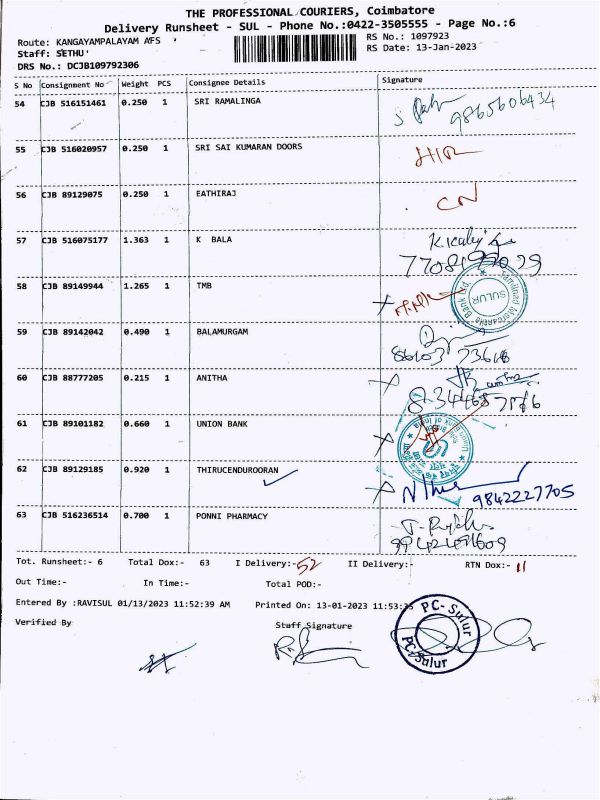 THE PROFESSIONAL COURIERS, Coimbatore
Delivery Runsheet - SUL - Phone No.:0422-3505555 - Page No.:6
Route: KANGAYAMPALAYAM AFS
RS No.: 1097923
Staff: SETHU
RS Date: 13-Jan-2023
DRS No.: DCJB109792306
S No Consignment No Weight PCS Consignee Details Signature
54 CJB 516151461 0.250 1 SRI RAMALINGA
9865606434
55 CJB 516020957 0.250 1 SRI SAI KUMARAN DOORS
56 CJB 89129075 0.250 1 EATHIRAJ CN
57 CJB 516075177 1.363 1 K BALA
58 CJB 89149944 1.265 1 TMB
Tamilnad Mercantile Bank Ltd.
SULUR
59 CJB 89142042 0.490 1 BALAMURGAM
86103 73618
60 CJB 88777205 0.215 1 ANITHA
61 CJB 89101182 0.660 1 UNION BANK
62 CJB 89129185 0.920 1 THIRUCENDUROORAN
9842227705
63 CJB 516236514 0.700 1 PONNI PHARMACY
Tot. Runsheet:- 6 Total Dox:- 63 I Delivery:- 52 II Delivery:- RTN Dox:- 11
Out Time:- In Time:- Total POD:-
Entered By :RAVISUL 01/13/2023 11:52:39 AM Printed On: 13-01-2023 11:53:
Verified By Staff Signature
PC-Sulur
PC-Sulur